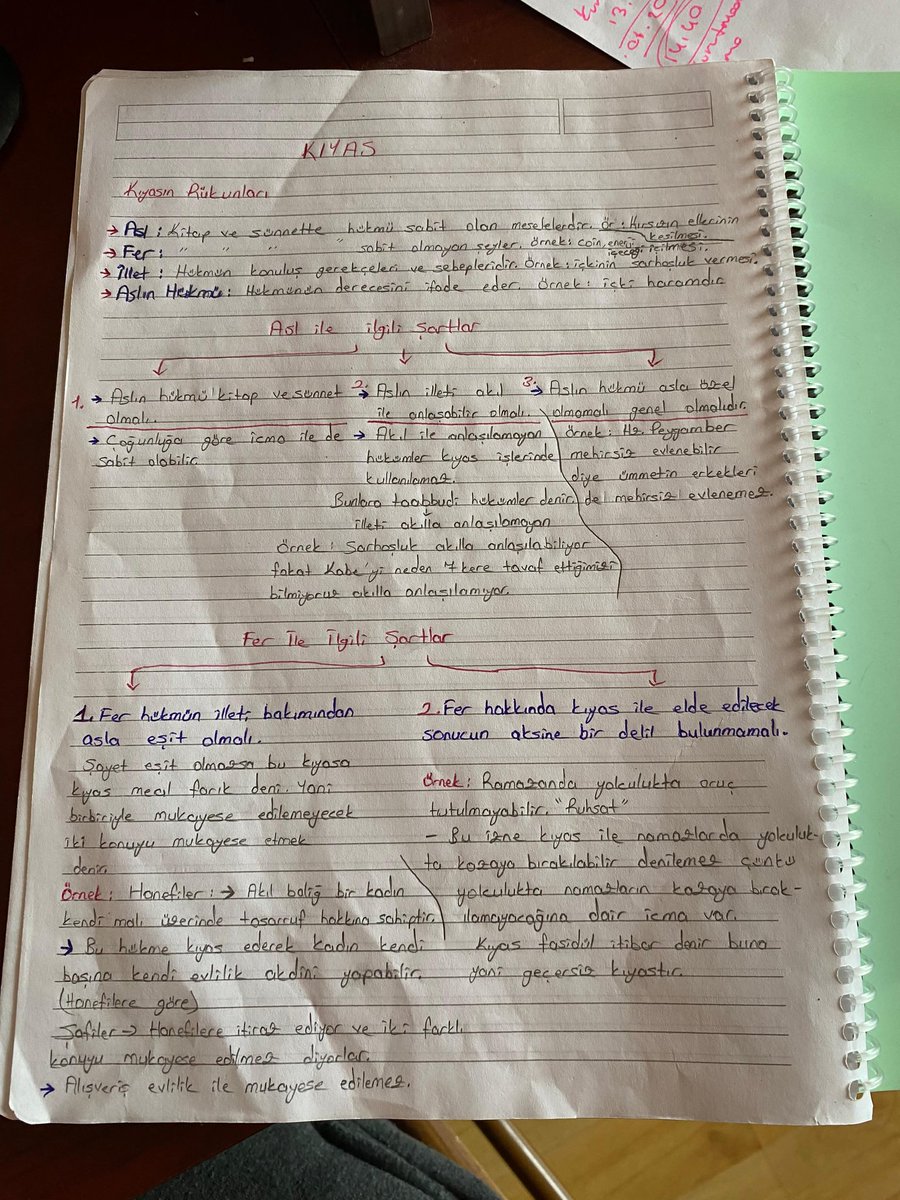 KIYAS
Kıyasın Rükunları
→ Asl : Kitap ve sünnette hükmü sabit olan meselelerdir. ör : Hırsızın ellerinin kesilmesi.
→ Fer : " " " " sabit olmayan şeyler. örnek : coin, enerji içeceği içilmesi.
→ İllet : Hükmün konuluş gerekçeleri ve sebepleridir. Örnek : içkinin sarhoşluk vermesi.
→ Aslın Hükmü : Hükmünün derecesini ifade eder. Örnek : içki haramdır
Asl ile ilgili Şartlar
1. → Aslın hükmü kitap ve sünnet
olmalı.
→ Çoğunluğa göre icma ile de
sabit olabilir.
2. → Aslın illeti akıl
ile anlaşabilir olmalı.
→ Akıl ile anlaşılamayan
hükümler kıyas işlerinde
kullanılamaz.
Bunlara taabbudi hükümler denir.
↓
illeti akılla anlaşılamayan
Örnek : Sarhoşluk akılla anlaşılabiliyor
fakat Kabe'yi neden 7 kere tavaf ettiğimizi
bilmiyoruz akılla anlaşılamıyor.
3. → Aslın hükmü asla özel
olmamalı genel olmalıdır.
Örnek : Hz. Peygamber
mehirsiz evlenebilir
diye ümmetin erkekleri
de mehirsiz evlenemez.
Fer İle İlgili Şartlar
1. Fer hükmün illeti bakımından
asla eşit olmalı.
Şayet eşit olmazsa bu kıyasa
kıyas meal farık deni. Yani
birbiriyle mukayese edilemeyecek
iki konuyu mukayese etmek
denir.
Örnek : Hanefiler : → Akıl baliğ bir kadın
kendi malı üzerinde tasarruf hakkına sahiptir.
→ Bu hükme kıyas ederek kadın kendi
başına kendi evlilik akdini yapabilir.
(Hanefilere göre)
Şafiler → Hanefilere itiraz ediyor ve iki farklı
konuyu mukayese edilmez diyorlar.
→ Alışveriş evlilik ile mukayese edilemez.
2. Fer hakkında kıyas ile elde edilecek
sonucun aksine bir delil bulunmamalı.
Örnek : Ramazanda yolculukta oruç
tutulmayabilir. "Ruhsat"
- Bu izne kıyas ile namazlarda yolculuk-
ta kazaya bırakılabilir denilemez çünkü
yolculukta namazların kazaya bırak-
ılamayacağına dair icma var.
Kıyas fasidül itibar denir buna
yani geçersiz kıyastır.